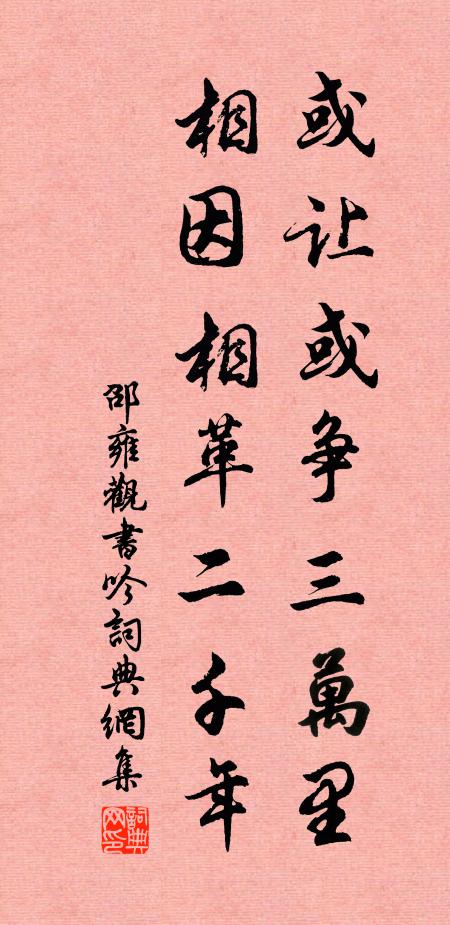 或让或争三萬里
相因相革二千年
邵雍觀書吟詞典網集
詞典网印